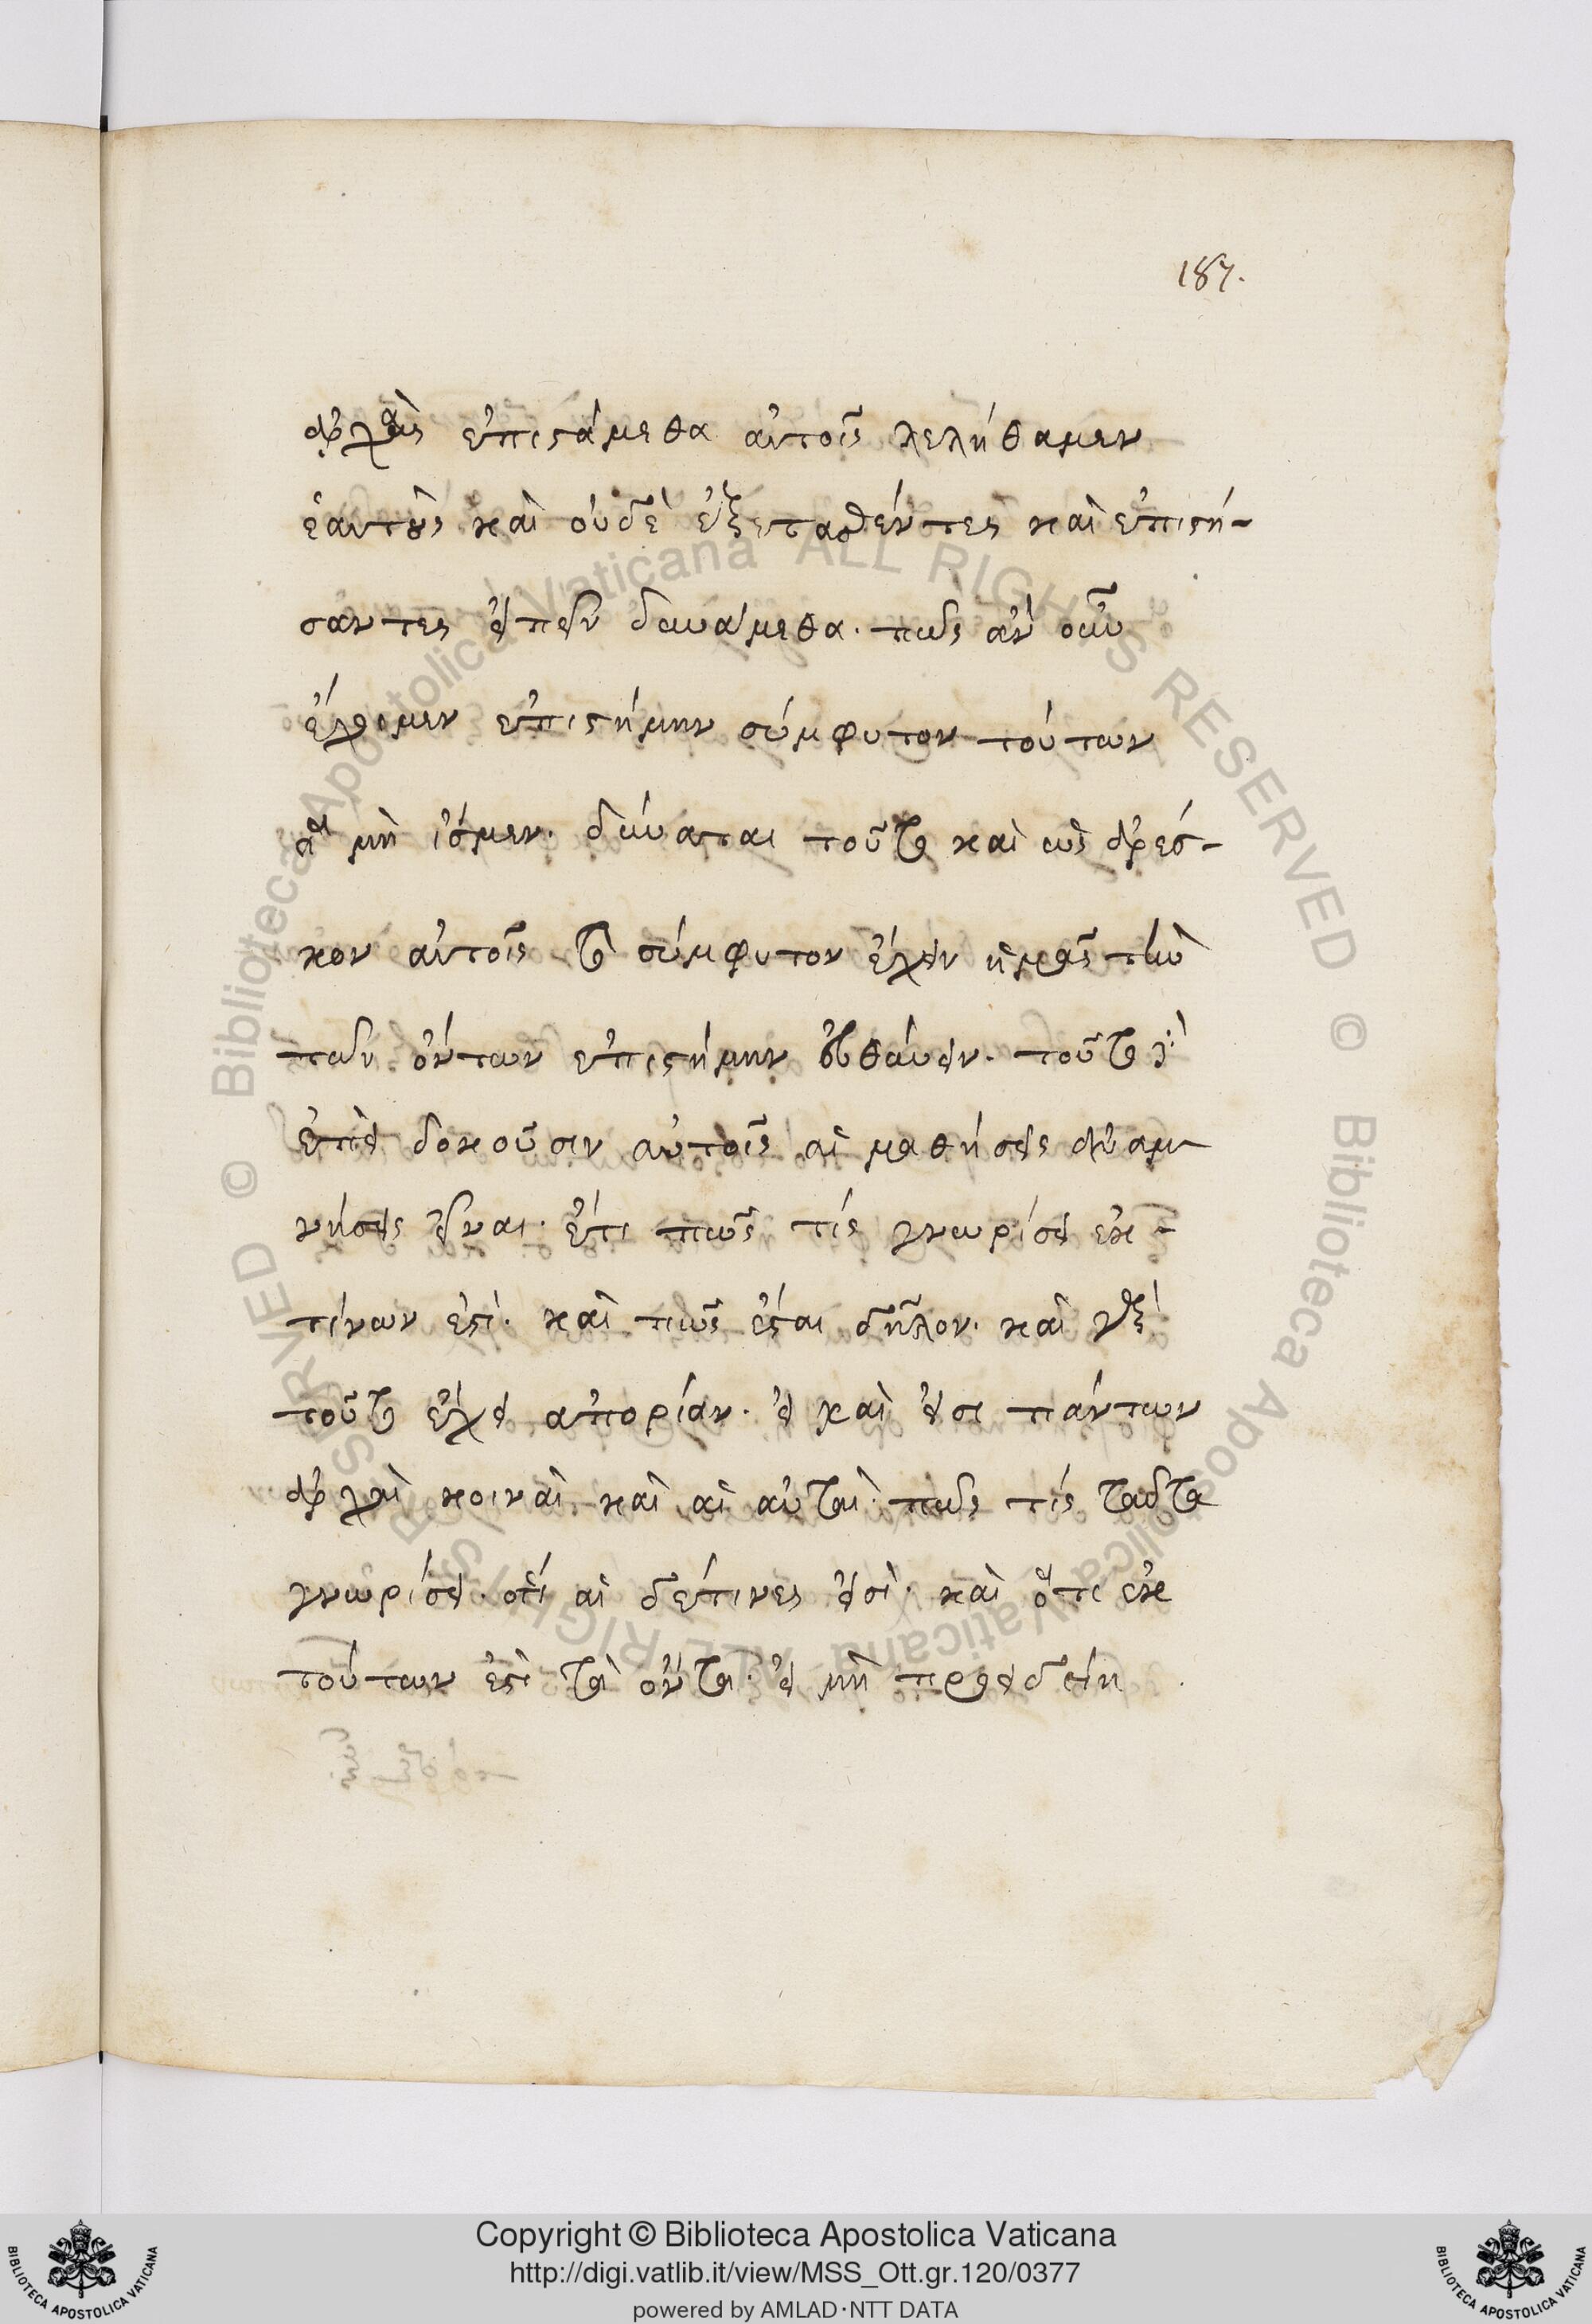 187.
ἀρχὰς ἐπιστάμεθα αὐτοῖς λελήθαμεν
ἑαυτοὺς καὶ οὐδὲ ἐξετασθέντες καὶ ἐπιστή-
σαντες εἰπεῖν δυνάμεθα· πῶς ἂν οὖν
ἔχοιμεν ἐπιστήμην σύμφυτον τούτων
ἃ μὴ ἴσμεν· δύναται τοῦτο καὶ ὡς ἀρέσ-
κον αὐτοῖς τὸ σύμφυτον ἔχειν ἡμᾶς τὴν
τῶν ὄντων ἐπιστήμην εὐθύνειν· τοῦτο γὰρ
ἐπεὶ δοκοῦσιν αὐτοῖς αἱ μαθήσεις ἀναμ
νήσεις εἶναι· ἔτι πῶς τίς γνωρίσει ἐκ-
τίνων ἐστί· καὶ πῶς ἔσται δῆλον· καὶ γὰρ
τοῦτο ἔχει ἀπορίαν· εἰ καὶ εἰσι πάντων
ἀρχαὶ κοιναὶ καὶ αἱ αὐταὶ· πῶς τίς ταῦτα
γνωρίσει· ὅτι αἱ δέ τινες εἰσὶ· καὶ ὅτι ἐκ
τούτων ἐστὶ τὰ ὄντα· εἰ μὴ προειδείη
Copyright © Biblioteca Apostolica Vaticana
http://digi.vatlib.it/view/MSS_Ott.gr.120/0377
powered by AMLAD·NTT DATA
© Biblioteca Apostolica Vaticana ALL RIGHTS RESERVED © Biblioteca Apostolica Vaticana ALL RIGHTS RESERVED
BIBLIOTECA APOSTOLICA VATICANA
BIBLIOTECA APOSTOLICA VATICANA